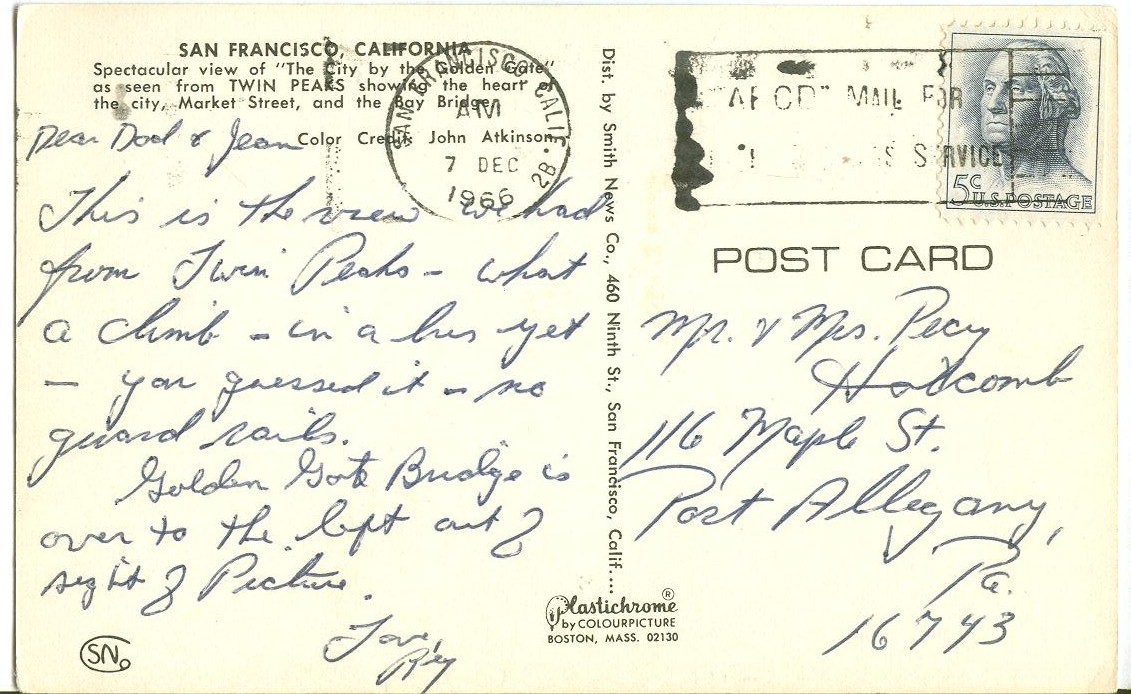 SAN FRANCISCO, CALIFORNIA
Spectacular view of "The City by the Golden Gate"
as seen from TWIN PEAKS showing the heart of
the city, Market Street, and the Bay Bridge.
Color Credit: John Atkinson
SAN FRANCISCO, CALIF. 2B
AM
7 DEC
1966
Dear Dad & Jean
This is the view we had
from Twin Peaks – what
a climb – in a bus yet
– you guessed it – no
guard rails.
Golden Gate Bridge is
over to the left out of
sight of Picture.
Love,
SN
Dist. by Smith News Co., 460 Ninth St., San Francisco, Calif....
Plastichrome ®
by COLOURPICTURE
BOSTON, MASS. 02130
MAIL FOR
5c U.S. POSTAGE
POST CARD
Mr. & Mrs. Percy
Holcomb
116 Maple St.
Port Allegany,
Pa.
16743